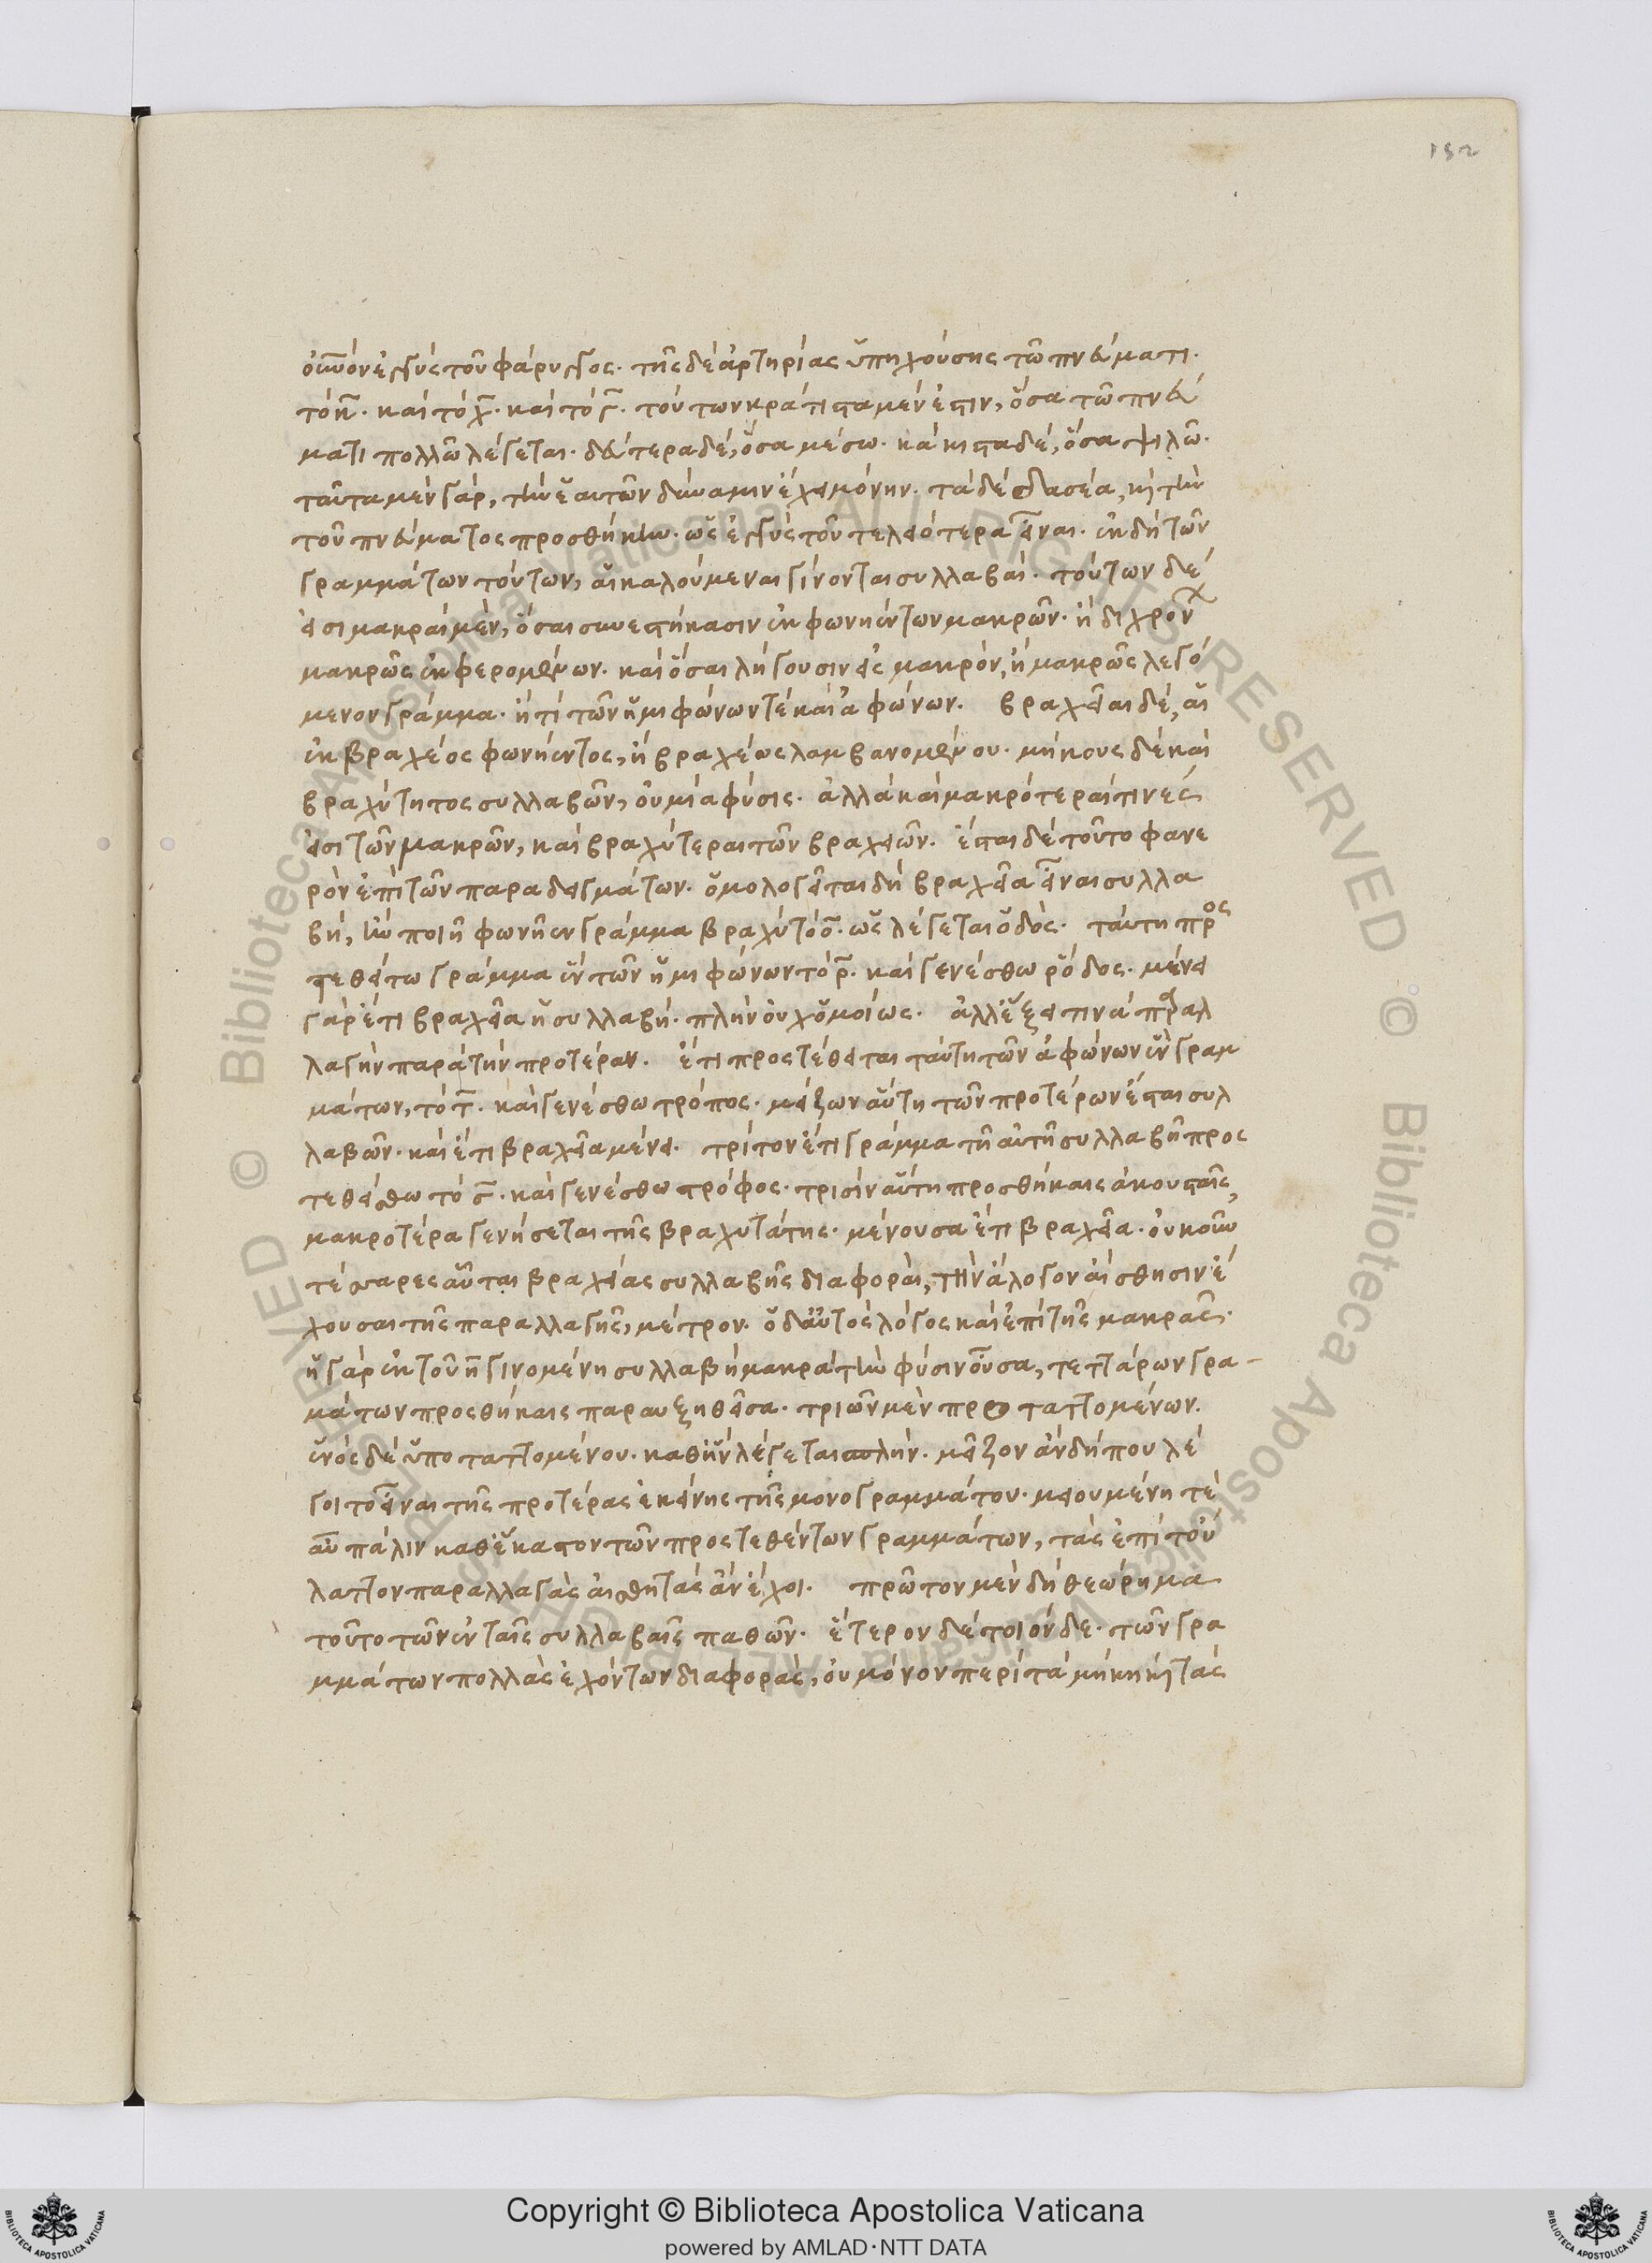 152
οὐνὸν ἐγγὺς τοῦ φάρυγγος· τῆς δὲ ἀρτηρίας ὑπηχούσης τῶ πνεύματι·
τὸ κ̅· καὶ τὸ χ̅· καὶ τὸ γ̅· τούτων κράτιστα μέν ἐστιν, ὅσα τῶ πνεύ
ματι πολλῶ λέγεται· δεύτερα δὲ, ὅσα μέσω· κάκιστα δὲ, ὅσα ψιλῶ·
ταῦτα μὲν γὰρ, τὴν ἑαυτῶν δύναμιν ἔχει μόνην· τὰ δὲ δασέα, κὶ τὴν
τοῦ πνεύματος προσθήκην· ὡς ἐγγὺς τοῦ τελειότερα εἶναι· ἐκ δὴ τῶν
γραμμάτων τούτων, αἱ καλούμεναι γίνονται συλλαβαί· τούτων δέ
εἰσι μακραὶ μὲν, ὅσαι συνεστήκασιν ἐκ φωνηέντων μακρῶν· ἢ διχρον
μακρῶς ἐκφερομένων· καὶ ὅσαι λήγουσιν εἰς μακρὸν, ἢ μακρῶς λεγό
μενον γράμμα· ἤ τι τῶν ἡμιφώνων τὲ καὶ ἀφώνων· βραχεῖαι δὲ, αἱ
ἐκ βραχέος φωνήεντος, ἢ βραχέως λαμβανομένου· μήκους δὲ καὶ
βραχύτητος συλλαβῶν, οὐ μία φύσις· ἀλλὰ καὶ μακρότεραί τινές
εἰσι τῶν μακρῶν, καὶ βραχύτεραι τῶν βραχειῶν· ἔσται δὲ τοῦτο φανε
ρὸν ἐπὶ τῶν παραδειγμάτων· ὁμολογεῖται δὴ βραχεῖα εἶναι συλλα
βὴ, ἣν ποιῆ φωνῆεν γράμμα βραχὺ τὸ ο̅· ὡς λέγεται ὁδὸς· ταύτη προς
τεθείτω γράμμα ἓν τῶν ἡμιφώνων τὸ ρ̅· καὶ γενέσθω ῥόδος· μένει
γὰρ ἔτι βραχεῖα ἡ συλλαβή· πλὴν οὐχ ὁμοίως· ἀλλ' ἕξει τινὰ παραλ
λαγὴν παρὰ τὴν προτέραν· ἔτι προςτεθείται ταύτη τῶν ἀφώνων ἓν γραμ
μάτων, τὸ τ̅· καὶ γενέσθω τρόπος· μείζων αὕτη τῶν προτέρων ἔσται συλ
λαβῶν· καὶ ἔτι βραχεῖα μένει· τρίτον ἔτι γράμμα τῆ αὐτῆ συλλαβῆ προς
τεθείσθω τὸ σ̅· καὶ γενέσθω στρόφος· τρισὶν αὕτη προσθήκαις ἀκουσταῖς,
μακροτέρα γενήσεται τῆς βραχυτάτης· μένουσα ἔτι βραχεῖα· οὐκοῦν
τέσσαρες αὗται βραχείας συλλαβῆς διαφοραὶ, τὴν ἄλογον αἴσθησιν ἔ
χουσαι τῆς παραλλαγῆς, μέτρον· ὁ δ' αὐτὸς λόγος καὶ ἐπὶ τῆς μακρᾶς·
ἡ γὰρ ἐκ τοῦ η̅ γινομένη συλλαβὴ μακρὰ τὴν φύσιν οὖσα, τεττάρων γρα-
μάτων προςθήκαις παραυξηθεῖσα· τριῶν μὲν προταττομένων·
ἑνὸς δὲ ὑποταττομένου· καθ' ἣν λέγεται σπλὴν· μεῖζον ἂν δήπου λέ
γοιτο εἶναι τῆς προτέρας ἐκείνης τῆς μονογραμμάτου· μειουμένη τὲ
αὖ πάλιν καθ' ἕκαστον τῶν προςτεθέντων γραμμάτων, τὰς ἐπὶ τοὔ
λαττον παραλλαγὰς αἰσθητὰς ἂν ἔχοι· πρῶτον μὲν δὴ θεώρημα
τοῦτο τῶν ἐν ταῖς συλλαβαῖς παθῶν· ἕτερον δὲ τοιόνδε· τῶν γρα
μμάτων πολλὰς ἐχόντων διαφορὰς, οὐ μόνον περὶ τὰ μήκη κὶ τὰς
Copyright © Biblioteca Apostolica Vaticana
powered by AMLAD·NTT DATA